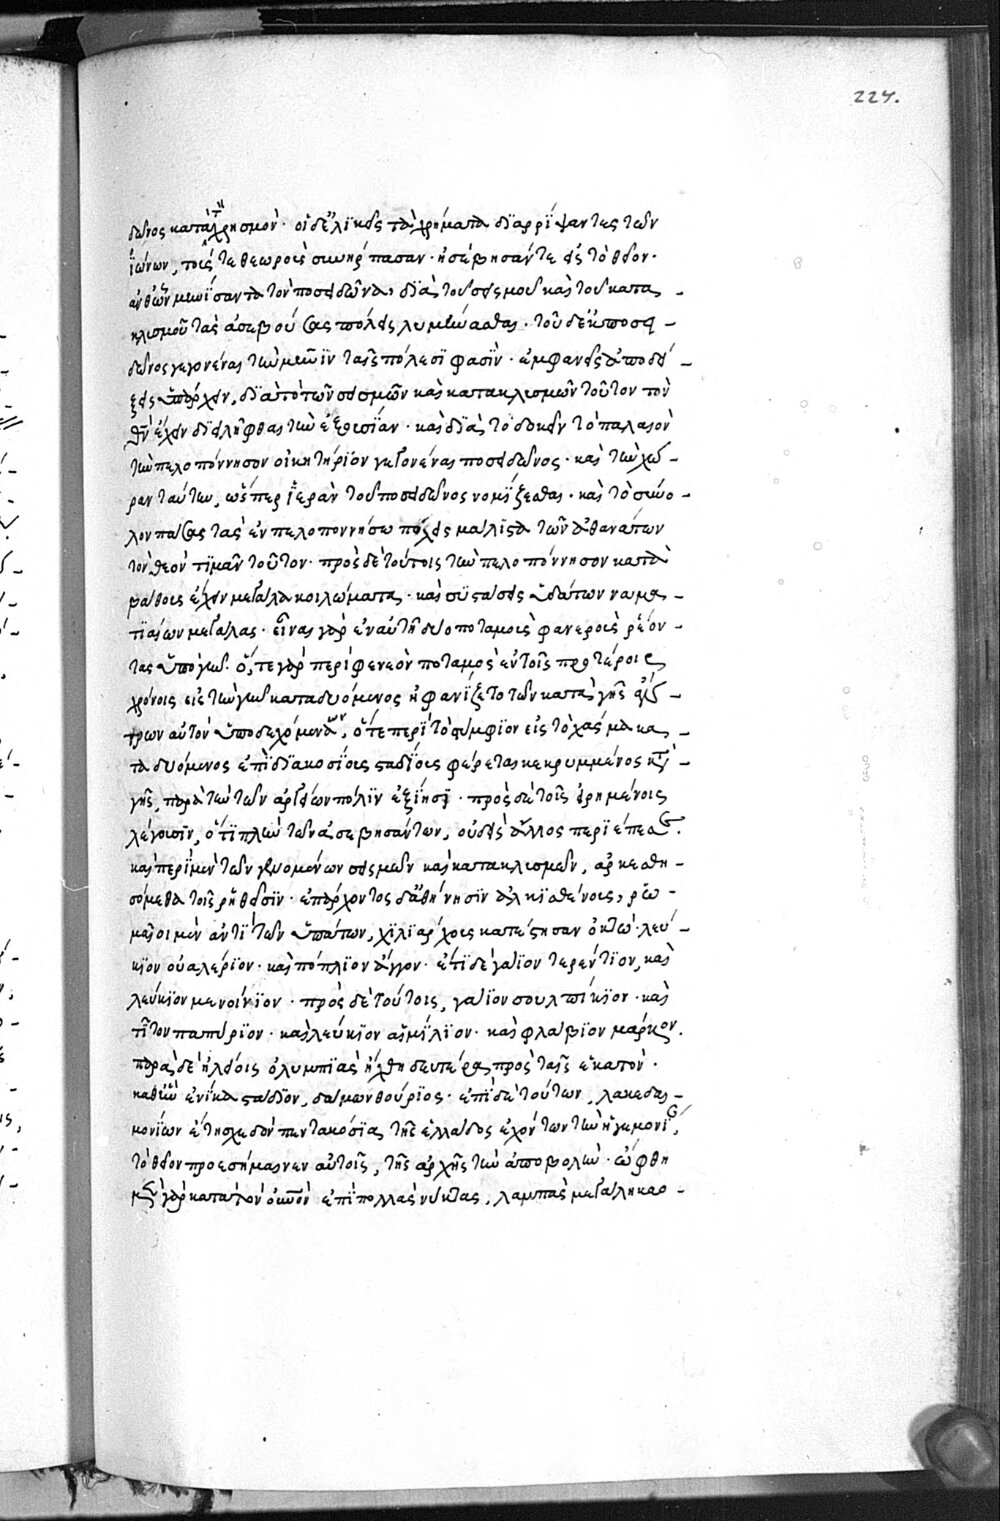 227.
δῶνος κατὰ τὴν χρησμόν· οἱ δὲ ἑλικεῖς τὰ χρήματα διαρρίψαντες τῶν
ἰώνων, τούς τε θεωροὺς συνήρπασαν· ἠσέβησάν τε εἰς τὸ θεῖον·
ἀνθ' ὧν μηνίσαντα τὸν ποσειδῶνα, διὰ τοῦ σεισμοῦ καὶ τοῦ κατα-
κλισμοῦ τὰς ἀσεβούσας πόλεις λυμήνασθαι· τοῦ δ' ἐκ ποσει-
δῶνος γεγονέναι τὴν μῆνιν ταῖς πόλεσί φασὶν· ἐμφανεῖς ἀποδεί-
ξεις ὑπάρχειν, διὰ τὸ τῶν σεισμῶν καὶ κατακλισμῶν τοῦτον τὸν
θν ἔχειν διειλῆφθαι τὴν ἐξουσίαν· καὶ διὰ τὸ δοκεῖν τὸ παλαιὸν
τὴν πελοπόννησον οἰκητήριον γεγονέναι ποσειδῶνος· καὶ τὴν χώ-
ραν ταύτην, ὥσπερ ἱερὰν τοῦ ποσειδῶνος νομίζεσθαι· καὶ τὸ σύνο-
λον πάσας τὰς ἐν πελοποννήσω πόλεις μάλιστα τῶν ἀθανάτων
τὸν θεὸν τιμᾶν τοῦτον· πρὸς δὲ τούτοις τὴν πελοπόννησον κατὰ
βάθους ἔχειν μεγάλα κοιλώματα· καὶ συστάσεις ὑδάτων ναμα-
τιαίων μεγάλας· εἶναι γὰρ ἐν αὐτῆ δύο ποταμοὺς φανεροὺς ῥέον-
τας ὑπὸ γῆν· ὅ, τε γὰρ περὶ φενεὸν ποταμὸς ἐν τοῖς προτέροις
χρόνοις εἰς τὴν γῆν καταδυόμενος ἠφανίζετο τῶν κατὰ γῆς ἄν-
τρων αὐτὸν ὑποδεχομένων, ὅ τε περὶ τὸ στύμφιον εἰς τὸ χάσμα κα-
ταδυόμενος ἐπὶ διακοσίοις σταδίοις φέρεται κεκρυμμένος κατὰ
γῆς, παρὰ τὴν τῶν ἀργείων πόλιν ἐξίησι· πρὸς δὲ τοῖς εἰρημένοις
λέγουσιν, ὅτι πλὴν τῶν ἀσεβησάντων, οὐδεὶς ἄλλος περιέπεσε.
καὶ περὶ μὲν τῶν γενομένων σεισμῶν καὶ κατακλισμῶν, ἀρκεσθη-
σόμεθα τοῖς ῥηθεῖσιν· ἐπ' ἄρχοντος δ' ἀθήνησιν ἀλκισθένους, ῥω-
μαῖοι μὲν ἀντὶ τῶν ὑπάτων, χιλιάρχους κατέστησαν ὀκτώ· λεύ-
κιον οὐαλέριον· καὶ πόπλιον ἄγγον· ἔτι δὲ γάιον τερέντιον, καὶ
λεύκιον μενοίνιον· πρὸς δὲ τούτοις, γάιον σουλπίκιον· καὶ
τίτον παπύριον· καὶ λεύκιον αἰμίλιον· καὶ φλάβιον μάρκον.
παρὰ δὲ ἠλείοις ὀλυμπιὰς ἤχθη δευτέρα πρὸς ταῖς ἑκατόν·
καθ' ἣν ἐνίκα στάδιον, δάμων θούριος· ἐπὶ δὲ τούτων, λακεδαι-
μονίων ἔτη σχεδὸν πεντακόσια τῆς ἑλλάδος ἐχόντων τὴν ἡγεμονίαν,
τὸ θεῖον προεσήμαινεν αὐτοῖς, τῆς ἀρχῆς τὴν ἀποβολήν· ὤφθη
μὲν γὰρ κατὰ τὸν οὐνὸν ἐπὶ πολλὰς νύκτας, λαμπὰς μεγάλη καο-